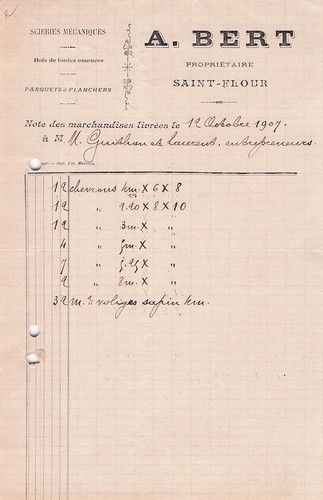 SCIERIES MÉCANIQUES
Bois de toutes essences
PARQUETS & PLANCHERS
A. BERT
PROPRIÉTAIRE
SAINT-FLOUR
Note des marchandises livrées le 12 Octobre 1907.
à M. M. et Laurent, entrepreneurs.
12 chevrons × 6 × 8
12 " 2.20 × 8 × 10
12 " 3m × "
4 " × "
7 " × "
2 " 8m × "
32 m. voliges sapin